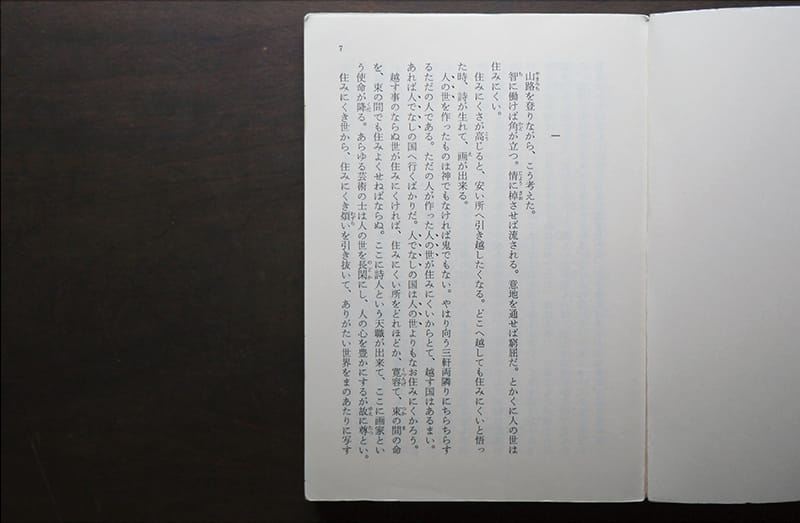 一
山路を登りながら、こう考えた。
智に働けば角が立つ。情に棹させば流される。意地を通せば窮屈だ。とかくに人の世は
住みにくい。
住みにくさが高じると、安い所へ引き越したくなる。どこへ越しても住みにくいと悟っ
た時、詩が生れて、画が出来る。
人の世を作ったものは神でもなければ鬼でもない。やはり向う三軒両隣りにちらちらす
るただの人である。ただの人が作った人の世が住みにくいからとて、越す国はあるまい。
あれば人でなしの国へ行くばかりだ。人でなしの国は人の世よりもなお住みにくかろう。
越す事のならぬ世が住みにくければ、住みにくい所をどれほどか、寛容て、束の間の命
を、束の間でも住みよくせねばならぬ。ここに詩人という天職が出来て、ここに画家とい
う使命が降る。あらゆる芸術の士は人の世を長閑にし、人の心を豊かにするが故に尊とい。
住みにくき世から、住みにくき煩いを引き抜いて、ありがたい世界をまのあたりに写す
7